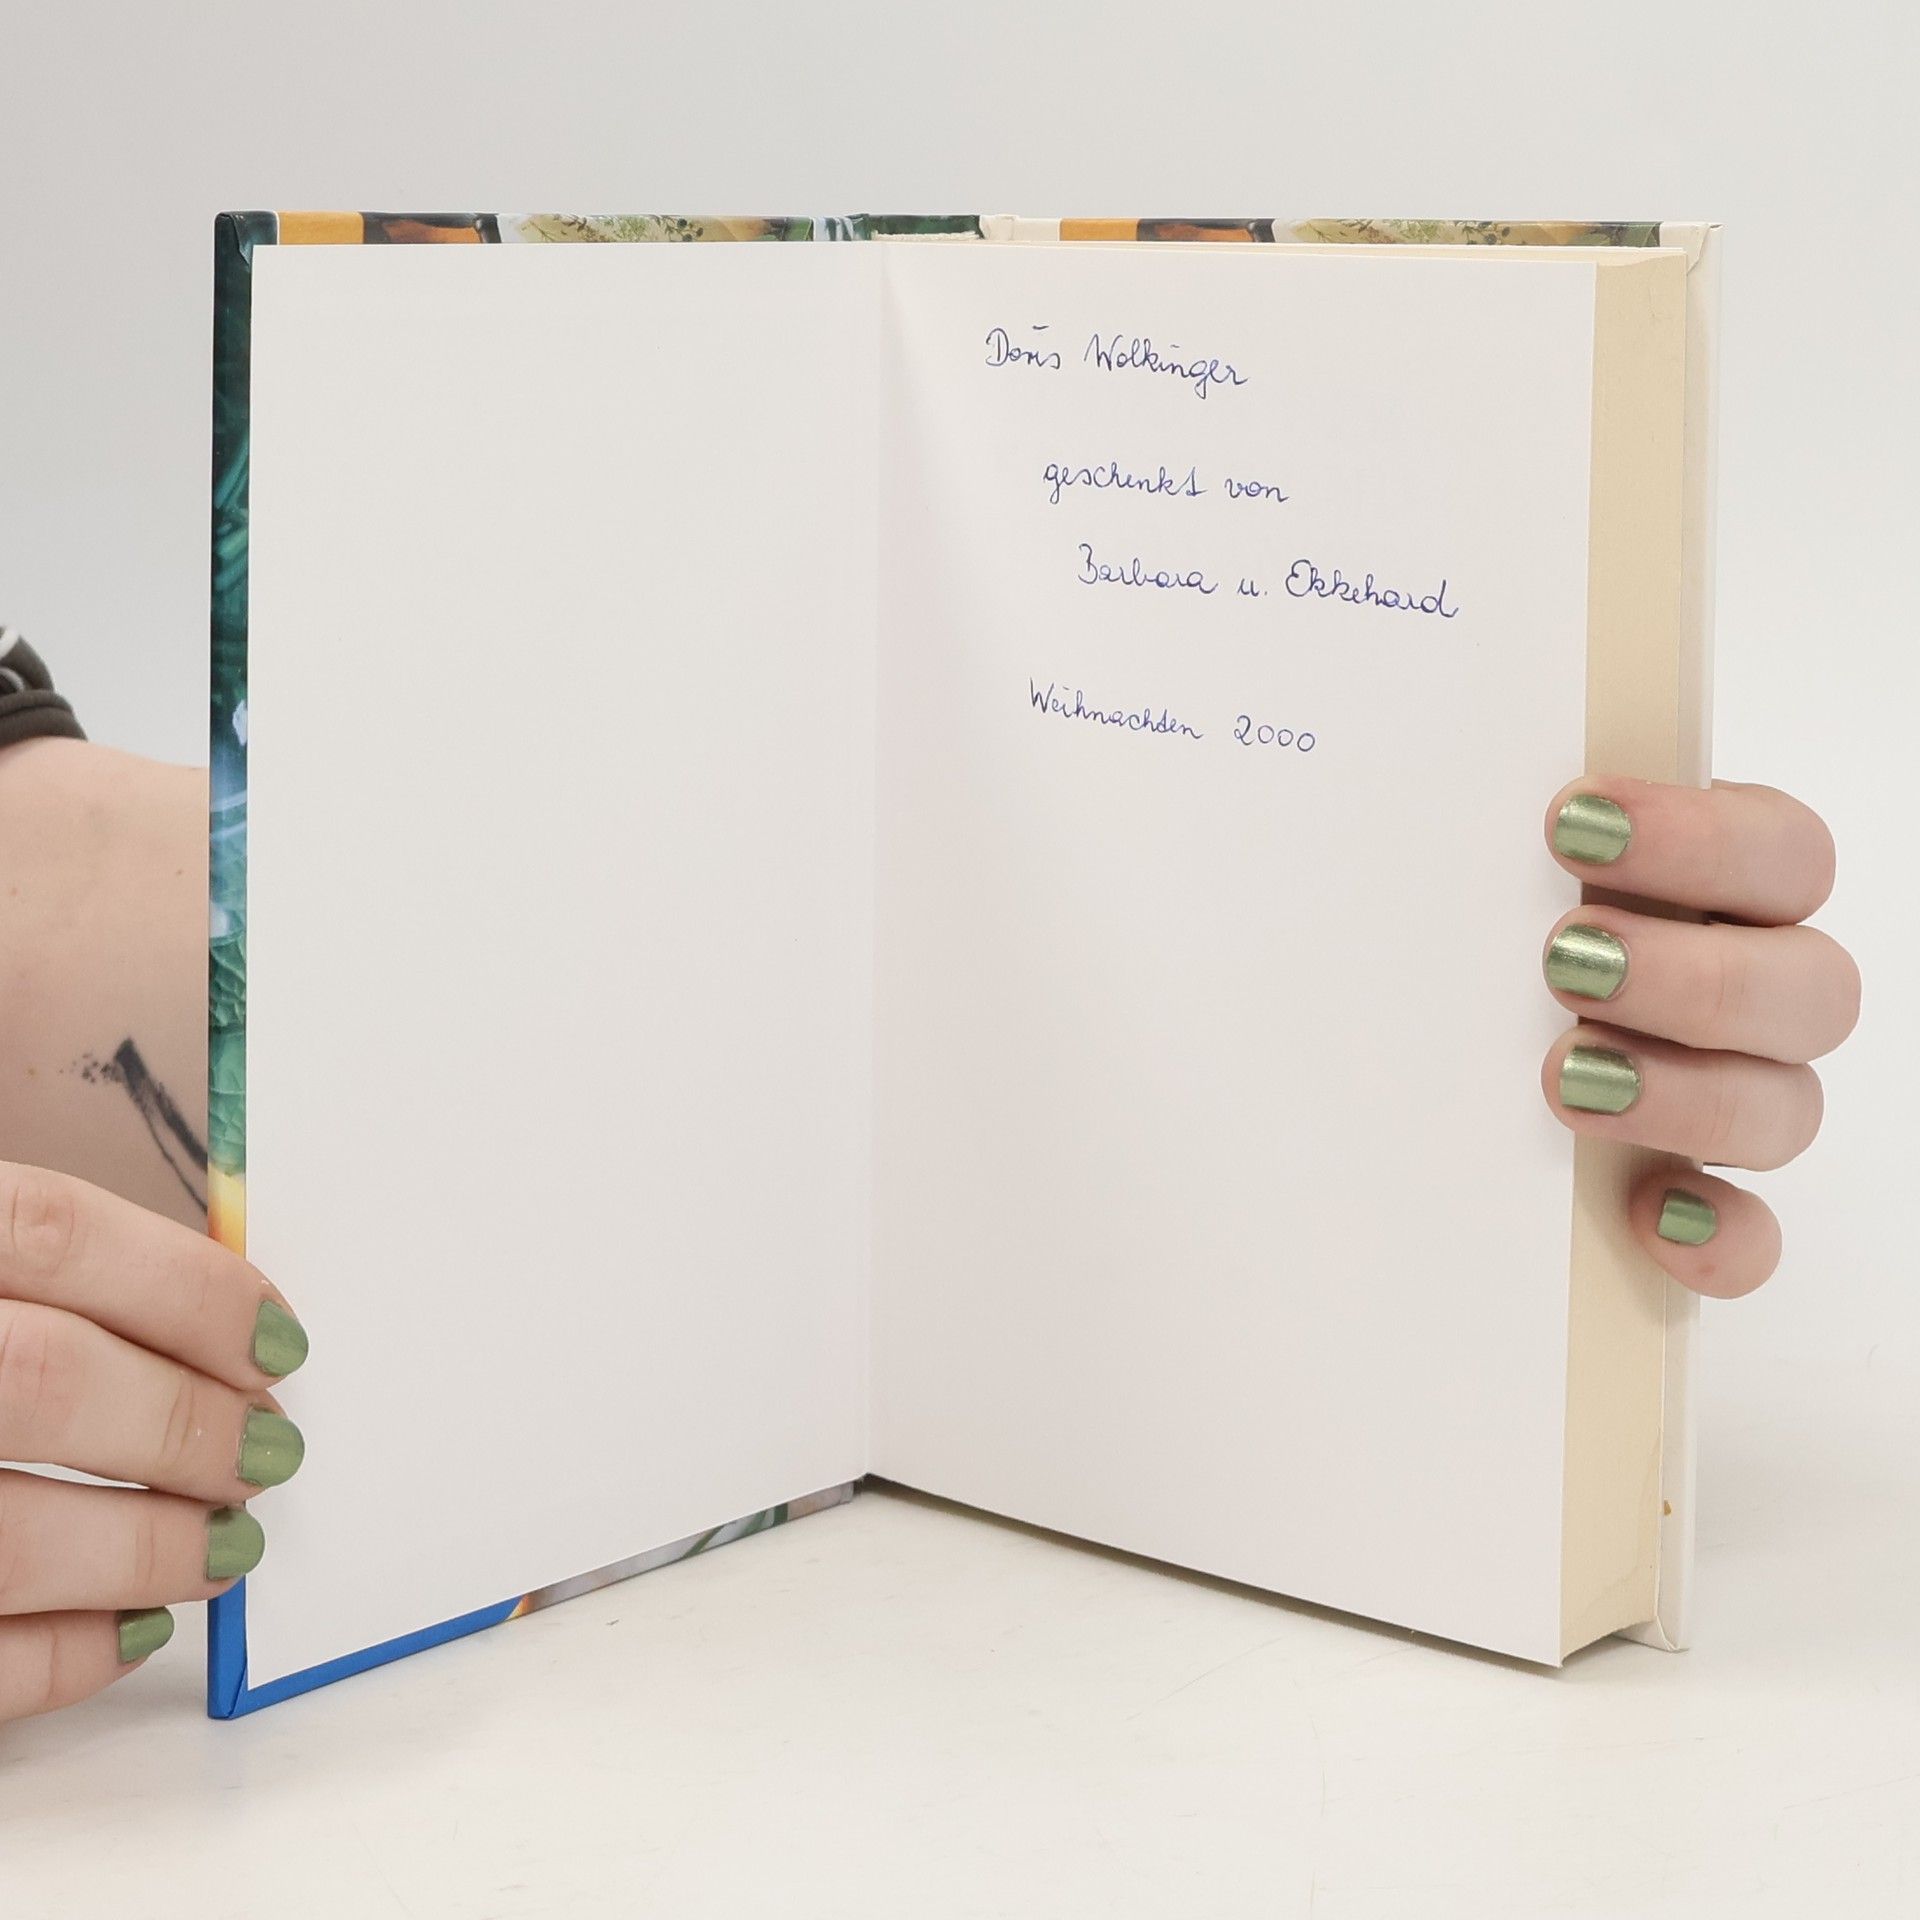 Doris Wolkinger
geschenkt von
Barbara u. Ekkehard
Weihnachten 2000